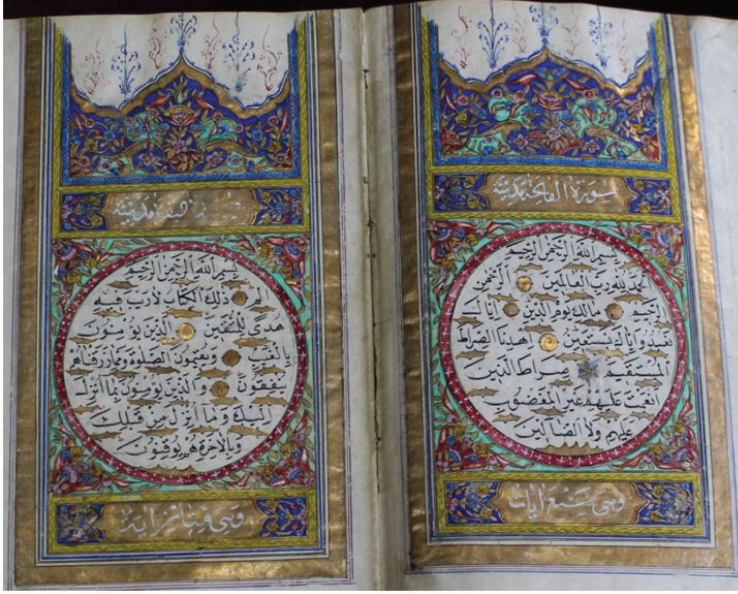 سورة الفاتحة مكية
بسم الله الرحمن الرحيم
الحمد لله رب العالمين الرحمن
الرحيم مالك يوم الدين اياك
نعبد و اياك نستعين اهدنا الصراط
المستقيم صراط الذين
انعمت عليهم غير المغضوب
عليهم ولا الضالين
وهي سبع ايات
البقرة مدنية
بسم الله الرحمن الرحيم
الم ذلك الكتاب لا ريب فيه
هدى للمتقين الذين يؤمنون
بالغيب ويقيمون الصلوة ومما رزقناهم
ينفقون والذين يؤمنون بما انزل
اليك وما انزل من قبلك
وبالاخرة هم يوقنون
وهي اية